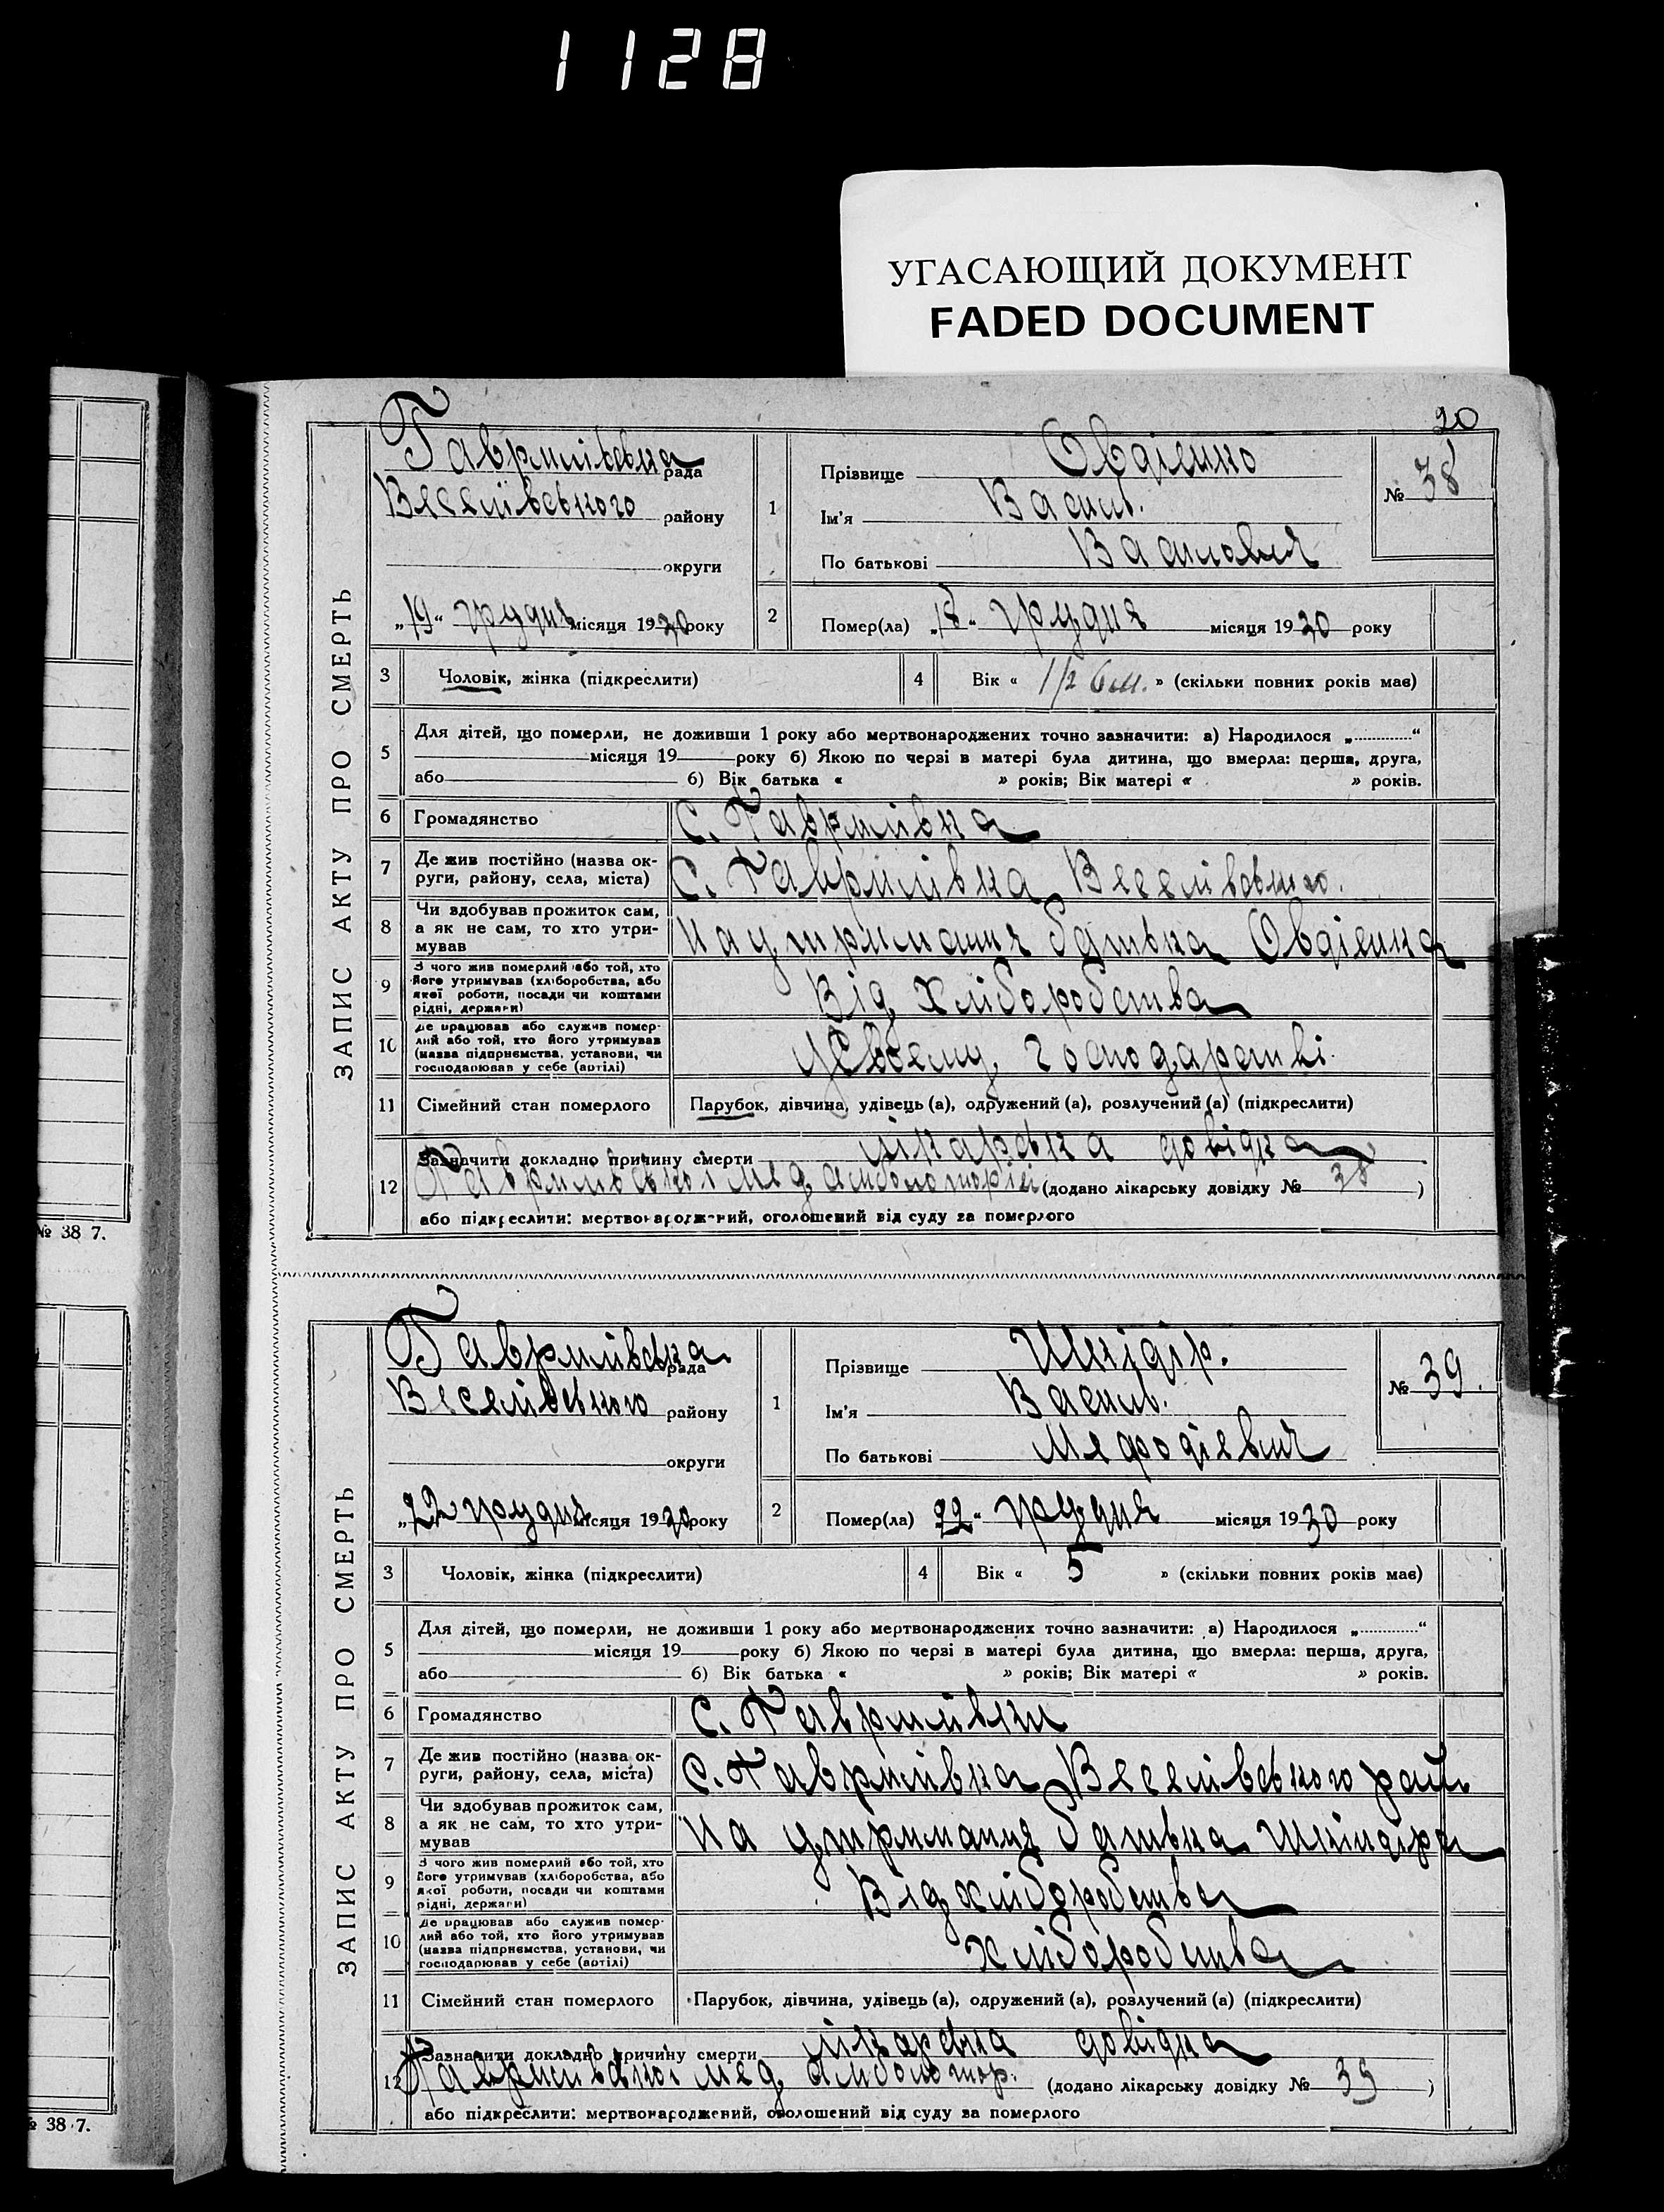 1128
УГАСАЮЩИЙ ДОКУМЕНТ
FADED DOCUMENT
20
ЗАПИС АКТУ ПРО СМЕРТЬ
Гаврилівська рада
Веселівського району
округи
„19“ грудня місяця 1930 року
1
Прізвище Овдіенко
Ім'я Василь.
По батькові Василович
№ 38
2
Помер(ла) „18“ грудня місяця 1930 року
3 Чоловік, жінка (підкреслити)
4 Вік « 1/2 » (скільки повних років має)
5 Для дітей, що померли, не доживши 1 року або мертвонароджених точно зазначити: а) Народилося „ “
місяця 19 року б) Якою по черзі в матері була дитина, що вмерла: перша, друга,
або б) Вік батька « » років; Вік матері « » років.
6 Громадянство с. Гаврилівка
7 Де жив постійно (назва округи, району, села, міста) С. Гаврилівка Веселівського.
8 Чи здобував прожиток сам,
а як не сам, то хто утри-
мував
На утримання батька Овдіенка
9 З чого жив померлий або той, хто
його утримував (хліборобства, або
якої роботи, посади чи коштами
рідні, держави)
Від Хліборобства
10 Де працював або служив помер-
лий або той, хто його утримував
(назва підприємства, установи, чи
господарював у себе (артілі)
У своему господарстві.
11 Сімейний стан померлого Парубок, дівчина, удівець (а), одружений (а), розлучений (а) (підкреслити)
12 Зазначити докладно причину смерти лікарська довідка
Гаврилівської мед амболоторії (додано лікарську довідку № 38 )
або підкреслити: мертвонароджений, оголошений від суду за померлого
№ 38 7.
ЗАПИС АКТУ ПРО СМЕРТЬ
Гаврилівська рада
Веселівського району
округи
„22 грудня місяця 1930 року
1
Прізвище Шнідір.
Ім'я Василь.
По батькові Мефодіевич
№ 39.
2
Помер(ла) 22“ грудня місяця 1930 року
3 Чоловік, жінка (підкреслити)
4 Вік « 5 » (скільки повних років має)
5 Для дітей, що померли, не доживши 1 року або мертвонароджених точно зазначити: а) Народилося „ “
місяця 19 року б) Якою по черзі в матері була дитина, що вмерла: перша, друга,
або б) Вік батька « » років; Вік матері « » років.
6 Громадянство с. Гаврилівки
7 Де жив постійно (назва округи, району, села, міста) С. Гаврилівка Веселівського рай.
8 Чи здобував прожиток сам,
а як не сам, то хто утри-
мував
На утримання батька Шніндіра
9 З чого жив померлий або той, хто
його утримував (хліборобства, або
якої роботи, посади чи коштами
рідні, держави)
Від хліборобства
10 Де працював або служив помер-
лий або той, хто його утримував
(назва підприємства, установи, чи
господарював у себе (артілі)
хліборобства
11 Сімейний стан померлого Парубок, дівчина, удівець (а), одружений (а), розлучений (а) (підкреслити)
12 Зазначити докладно причину смерти лікарська довідка
Гаврилівської мед амболотор. (додано лікарську довідку № 39 )
або підкреслити: мертвонароджений, оголошений від суду за померлого
№ 38 7.